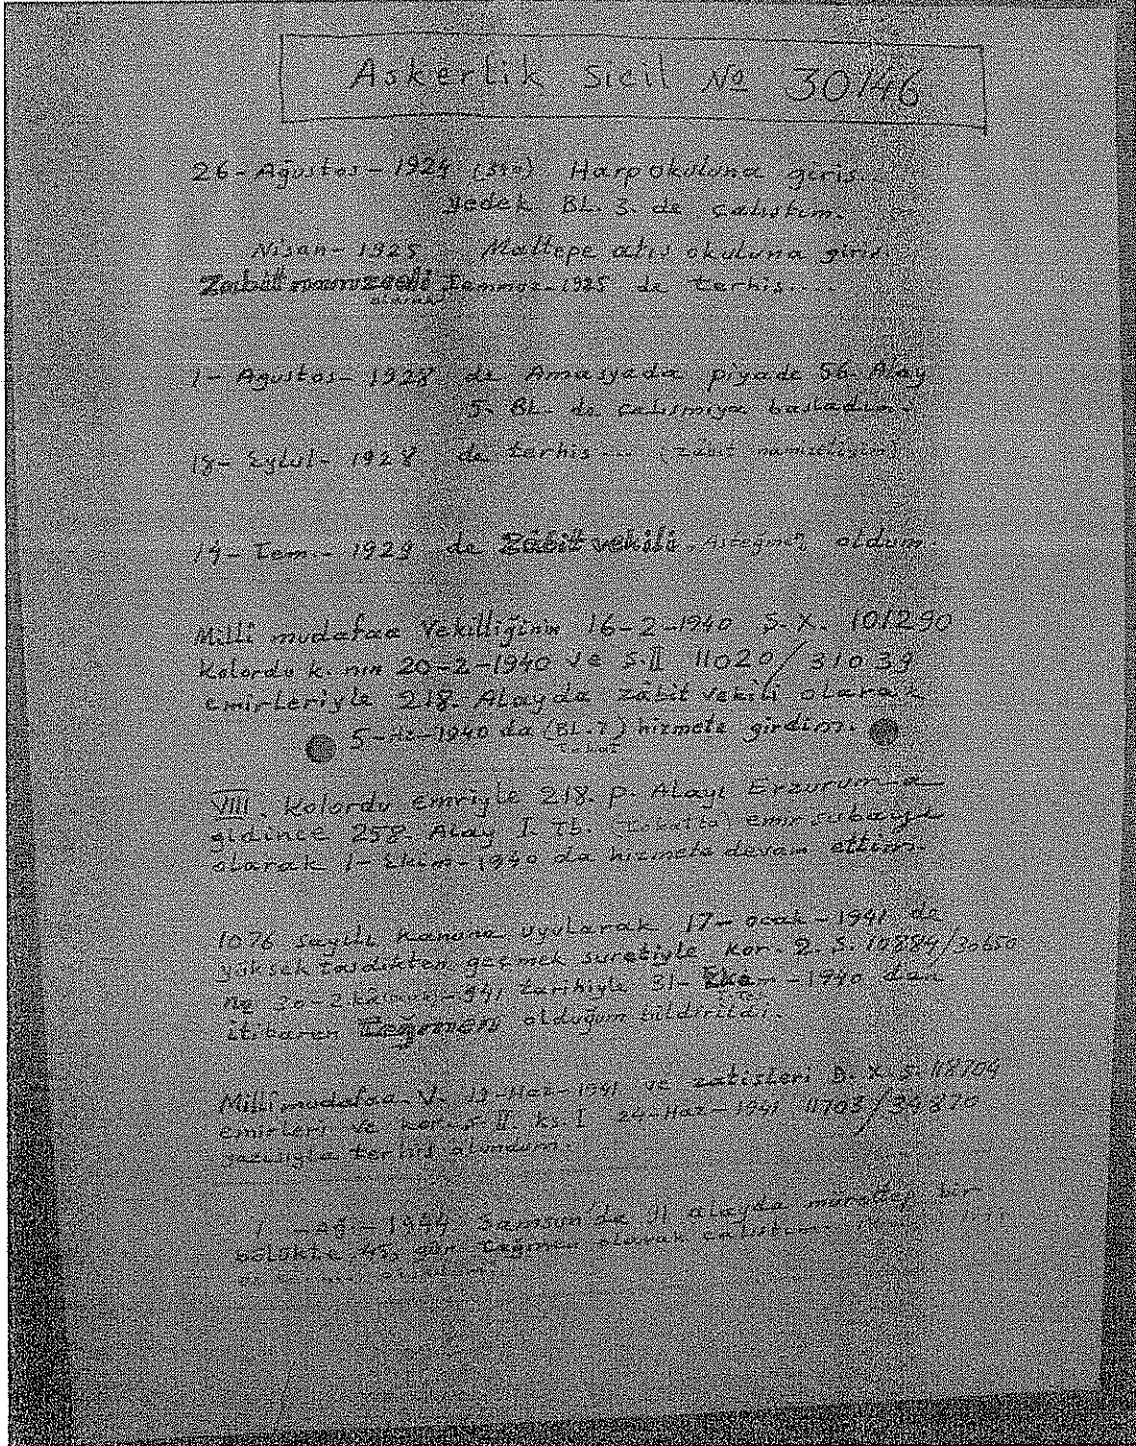 Askerlik Sicil No 30146
26-Ağustos-1924 Harp Okuluna giris..
Yedek BL. 3. de calıstım.
Nisan-1925 Maltepe atıs okuluna giris.
Zabit namzedi olarak Temmuz-1925 de terhis....
1-Agustos-1928 de Amasyada piyade 56. Alay
5. BL. de calısmıya basladım.
18-Eylul-1928 de terhis...
14-Tem.-1929 de Zabit vekili oldum.
Milli mudafaa Vekilliğinin 16-2-1940 Ş.X. 101290
kolordu k. nın 20-2-1940 ve Ş.II 11020/31039
emirleriyle 218. Alayda zâbit vekili olarak
1940 da (BL.7) hizmete girdim.
VIII. Kolordu emriyle 218. P. Alayı Erzurum'a
gidince 258. Alay I. Tb. emir subaylı
olarak 1-Ekim-1940 da hizmete devam ettim.
1076 sayılı kanuna uyularak 17-ocak-1941 de
yüksek tasdikten gecmek suretiyle Kor. 2. Ş. 10884/30650
tarihiyle 31- -1940 dan
itibaren Teğmen olduğum bildirildi.
Milli mudafaa V. 13-Haz-1941 ve zatisleri D. X. Ş. 118704
emirleri ve Kor. Ş II. ks. I 24-Haz-1941 11703/34870
terhis olundum.
1944 Samsun'da alayda mürettep bir
bölükte 45 gün teğmen olarak calıstım